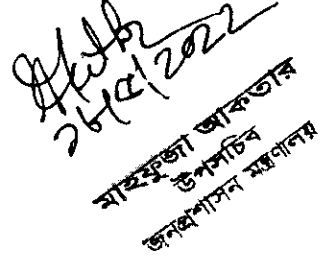 ২৮/৫/2022
মাহফুজা আকতার
উপসচিব
জনপ্রশাসন মন্ত্রণালয়